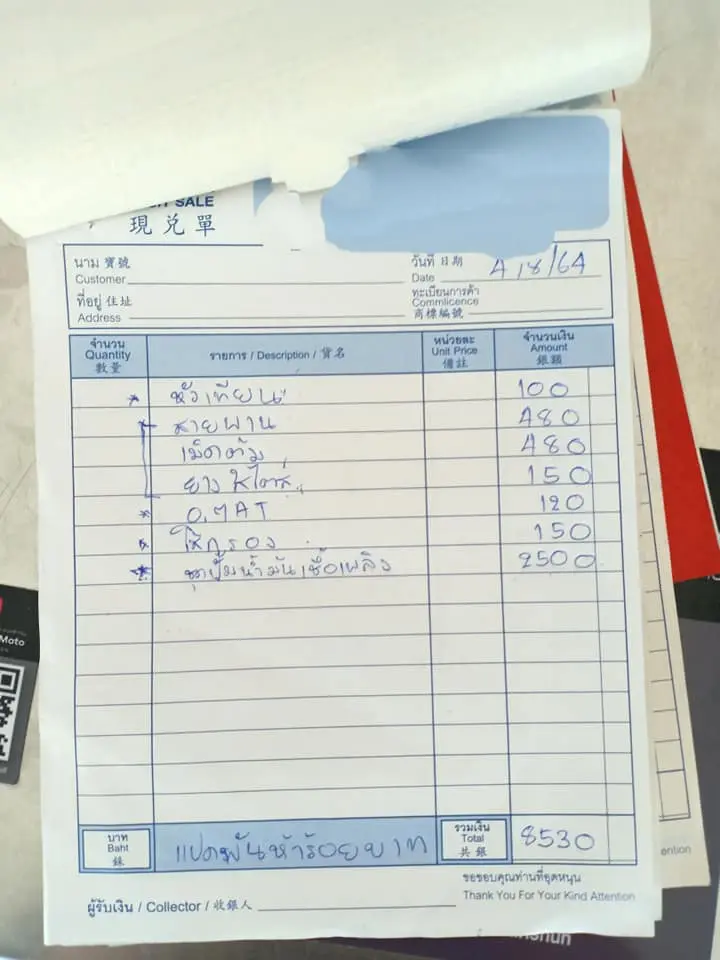 SALE
現兌單
นาม 寶號
Customer
วันที่ 日期
Date 4/8/64
ที่อยู่ 住址
Address
ทะเบียนการค้า
Commlicence
商標編號
จำนวน
Quantity
數量
รายการ / Description / 貨名
หน่วยละ
Unit Price
備註
จำนวนเงิน
Amount
銀額
หัวเทียน 100
สายพาน 480
เม็ดตุ้ม 480
ยาง 150
AT 120
ไส้กรอง 150
ชุดปั้มน้ำมันเชื้อเพลิง 2500
บาท
Baht
銖
แปดพันห้าร้อยบาท
รวมเงิน
Total
共銀
8530
ขอขอบคุณท่านที่อุดหนุน
Thank You For Your Kind Attention
ผู้รับเงิน / Collector / 收銀人
Moto
ention